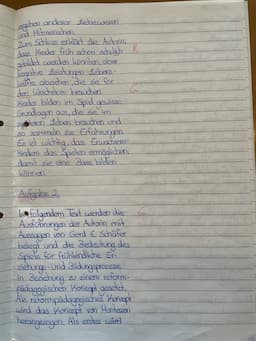 anderer Lebewesen
und Mitmenschen.
Zum Schluss erklärt die Autorin,
dass Kinder früh schon schulisch
gebildet werden könnten, aber
kognitive Leistungen Lebens-
abziehen, die sie für
den Wachstum brauchen
Kinder bilden im Spiel gewisse
Grundlagen aus, die sie im
Leben brauchen und
so sammeln sie Erfahrungen.
Es ist wichtig, dass Erwachsene
Kindern das Spielen ermöglichen,
damit sie eine Basis bilden
können.
Aufgabe 2.
folgendem Text werden die
Ausführungen der Autorin mit
Aussagen von Gerd E. Schäfer
belegt und die Bedeutung des
Spiels für frühkindliche Er-
ziehungs- und Bildungsprozesse
in Beziehung zu einem reform-
pädagogischen Konzept gesetzt.
Als reformpädagogisches Konzept
wird das Konzept von Montessori
herangezogen. Als erstes wird